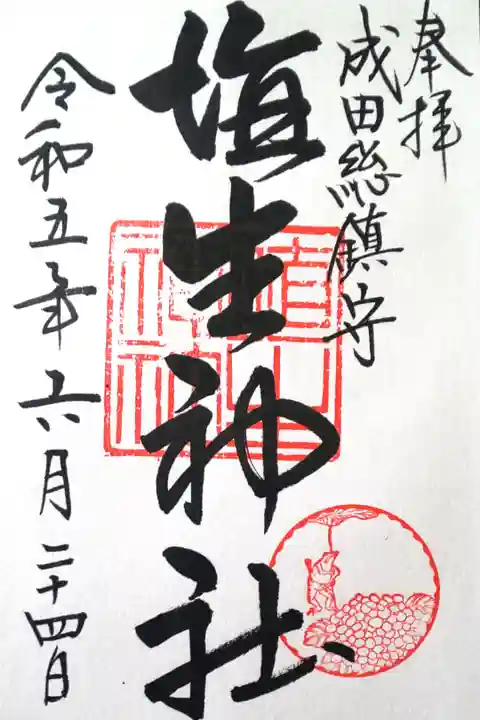 奉拝
成田総鎮守
埴生神社
令和五年六月二十四日
埴生
神社